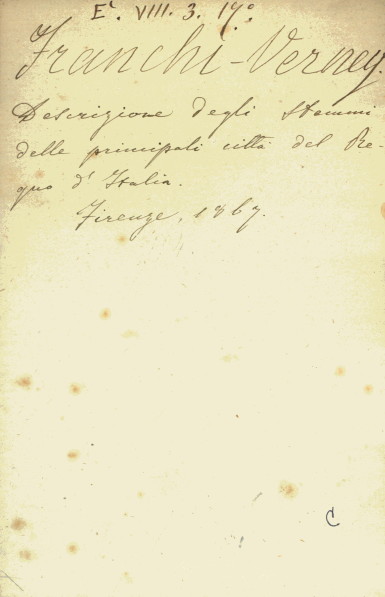 E'. VIII. 3. 19°
Franchi-Verney.
Descrizione degli stemmi
delle principali città del Re-
gno d'Italia.
Firenze, 1867.
C